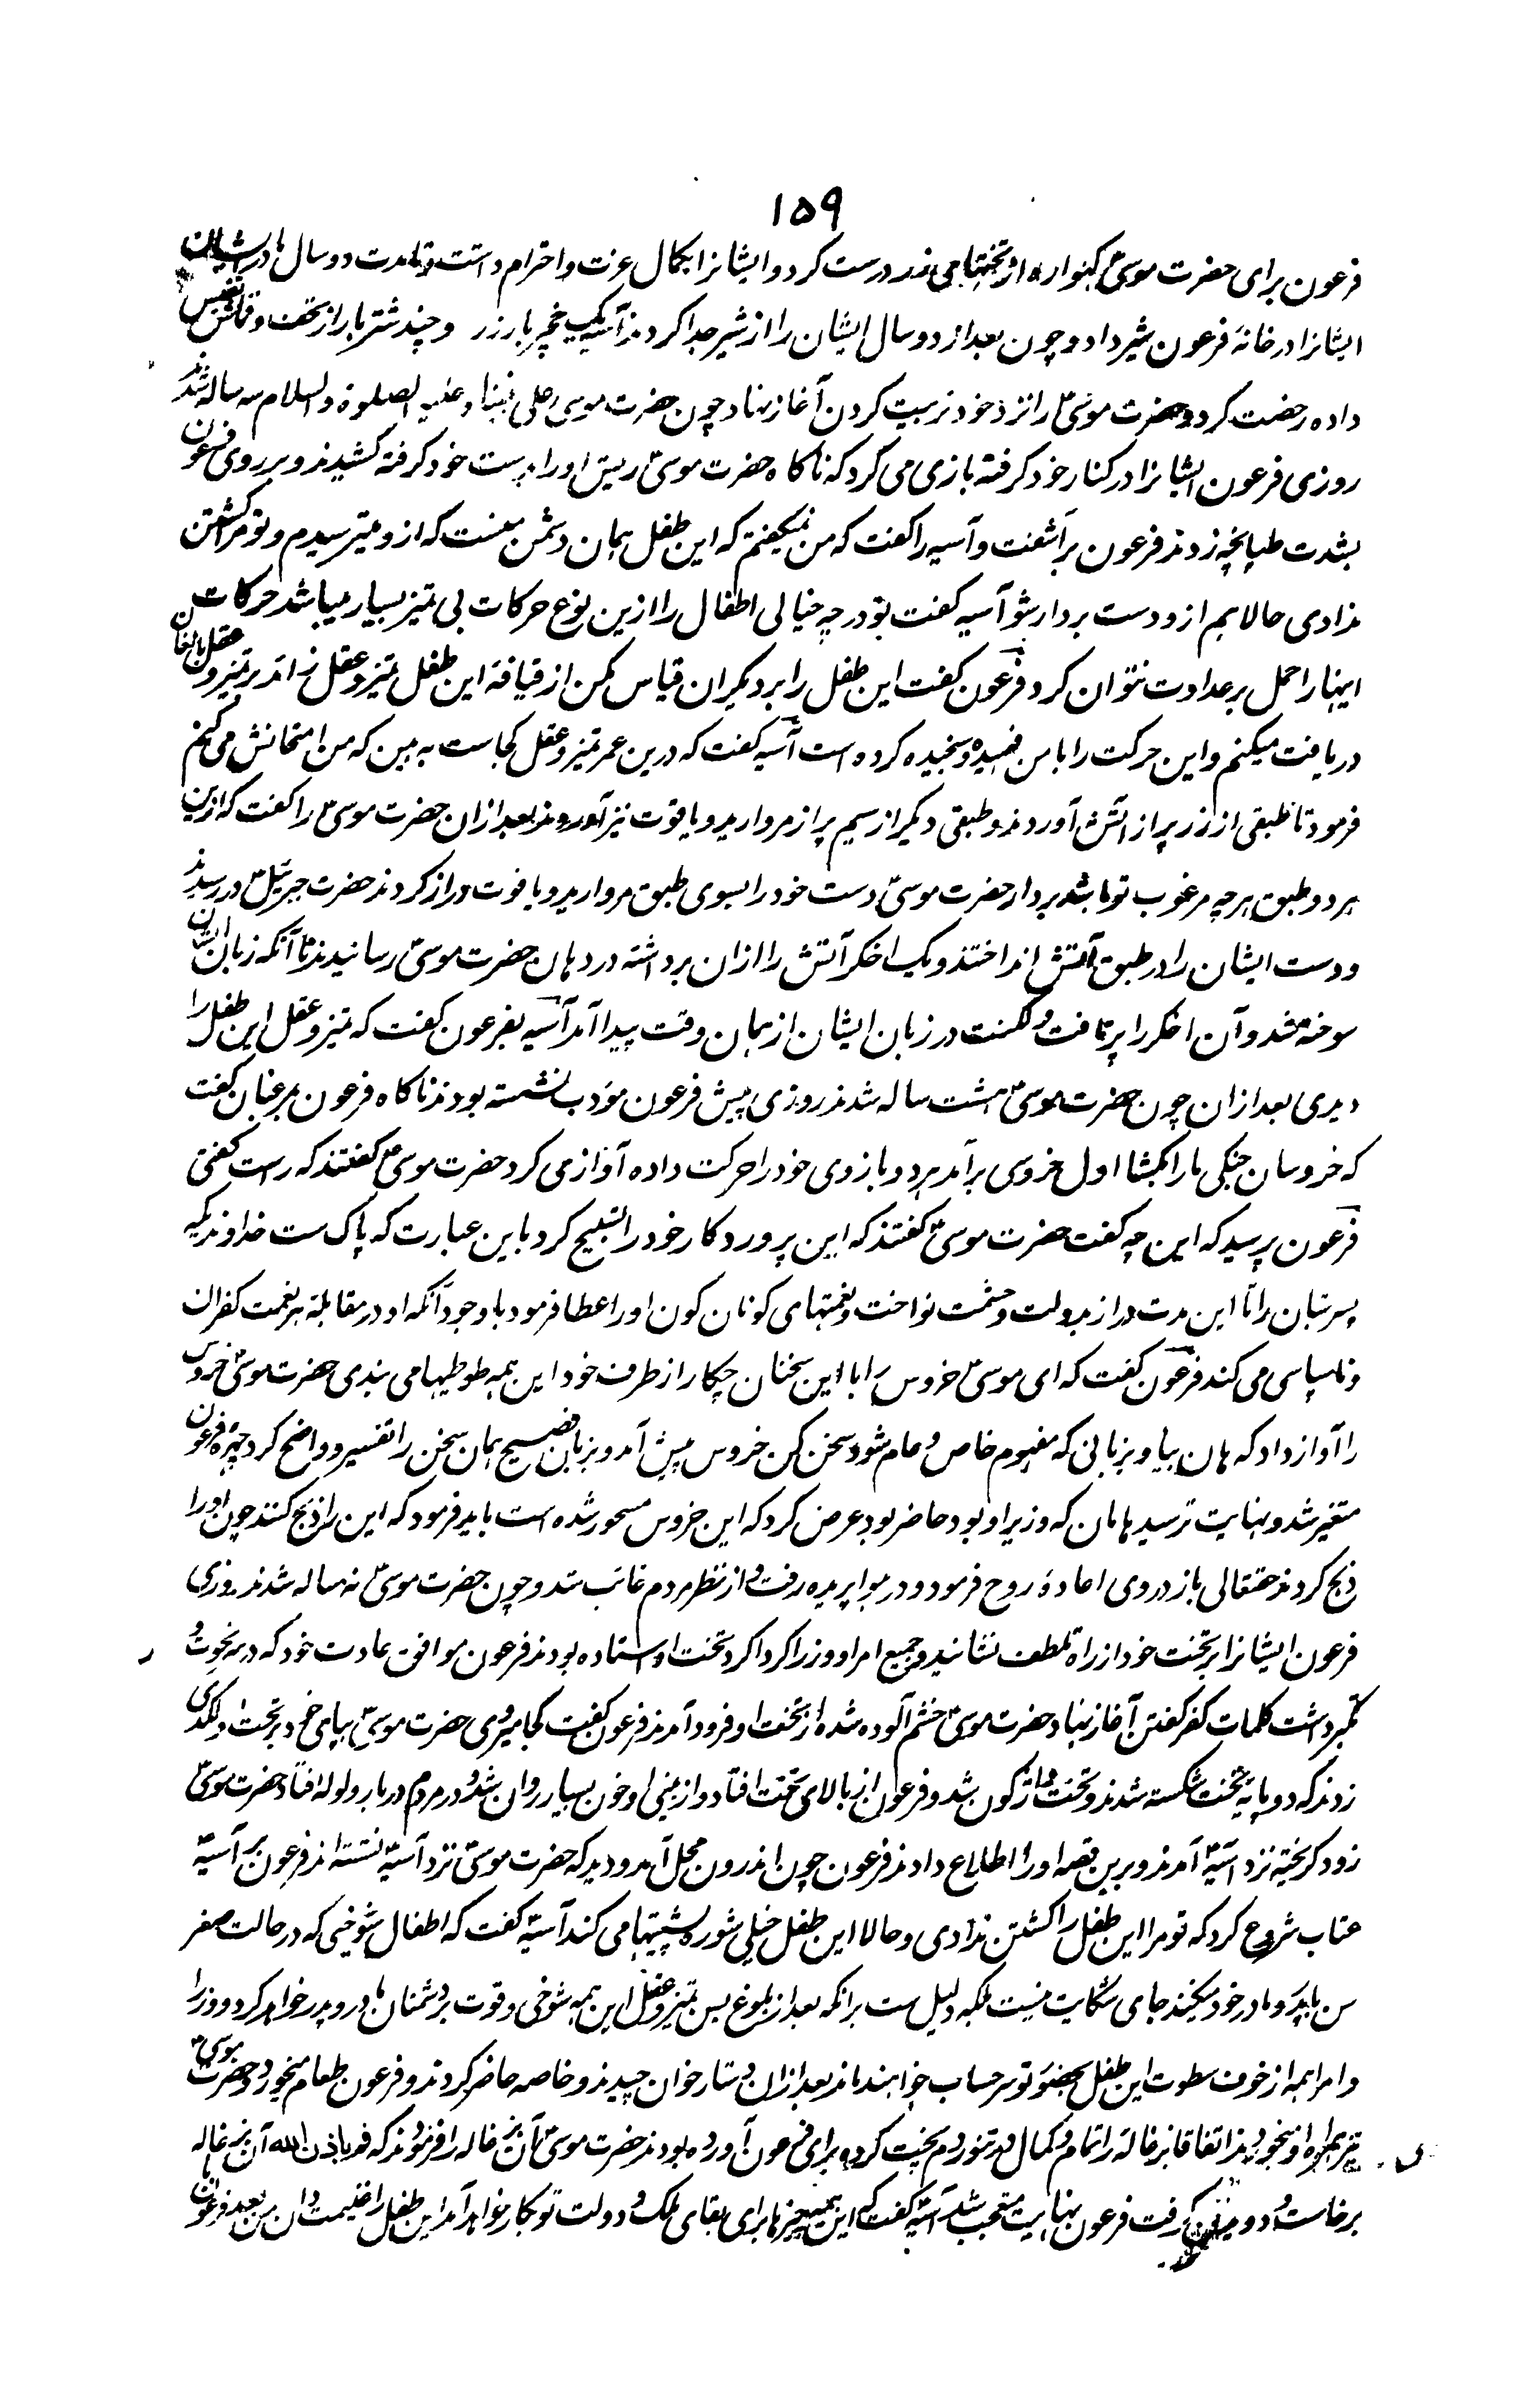 ۱۵۹
فرعون برای حضرت موسیٰ گهواره از تختهای زر درست کرد و ایشانرا بکمال عزت و احترام داشت و تا مدت دو سال مادر ایشان
ایشانرا در خانهٔ فرعون شیر داد و چون بعد از دو سال ایشان را از شیر جدا کردند آسیه یک خچر بار زر و چند شتر بار از تحف و قماش نفیس
داده رخصت کرد و حضرت موسیٰ را نزد خود تربیت کردن آغاز نهاد چون حضرت موسی علی نبینا و علیه الصلوة والسلام سه ساله شدند
روزی فرعون ایشانرا در کنار خود گرفته بازی می کرد که ناگاه حضرت موسیٰ ریش او را بدست خود گرفته کشیدند و بر روی فرعون
بشدت طپانچه زدند فرعون برآشفت و آسیه را گفت که من نمیگفتم که این طفل همان دشمن منست که ازو میترسیدم و تو مرا کشتن
ندادی حالا هم ازو دست بردار شو آسیه گفت تو در چه خیالی اطفال را ازین نوع حرکات بی تمیز بسیار میباشد حرکات
اینها را حمل بر عداوت نتوان کرد فرعون گفت این طفل را بر دیگران قیاس مکن از قیافهٔ این طفل تمیز و عقل زائد بر تمیز و عقل بالغان
دریافت میکنم و این حرکت را با من فهمیده و سنجیده کرده است آسیه گفت که درین عمر تمیز و عقل کجاست به بین که من امتحانش می کنم
فرمود تا طبقی از زر پر از آتش آوردند و طبقی دیگر از سیم پر از مروارید و یاقوت نیز آوردند بعد ازان حضرت موسیٰ را گفت که ازین
هر دو طبق هر چه مرغوب تو باشد بردار حضرت موسیٰ دست خود را بسوی طبق مروارید و یاقوت دراز کردند حضرت جبرئیل در رسیدند
و دست ایشان را در طبق آتش انداختند و یک اخگر آتش را ازان برداشته در دهان حضرت موسیٰ رسانیدند تا آنکه زبان ایشان
سوخته شد و آن اخگر را پرتافت و لکنت در زبان ایشان از همان وقت پیدا آمد آسیه بفرعون گفت که تمیز و عقل این طفل را
دیدی بعد ازان چون حضرت موسیٰ هشت ساله شدند روزی پیش فرعون مؤدب نشسته بودند ناگاه فرعون بمرغبان گفت
که خروسان جنگی ما را بکشا اول خروسی برآمد پرد و بازوی خود را حرکت داده آواز می کرد حضرت موسیٰ گفتند که راست گفتی
فرعون پرسید که این چه گفت حضرت موسیٰ گفتند که این پروردگار خود را تسبیح کرد باین عبارت که پاک ست خداوندیکه
پسر شبان را تا این مدت دراز بدولت و حشمت نواخت و نعمتهای گوناگون او را عطا فرمود با وجود آنکه او در مقابلهٔ هر نعمت کفران
و ناسپاسی می کند فرعون گفت که ای موسیٰ خروس را با این سخنان چکار از طرف خود این همه طوطیها می بندی حضرت موسیٰ خروس
را آواز داد که هان بیا و بزبانی که مفهوم خاص و عام شود سخن کن خروس پیش آمد و بزبان فصیح همان سخن را تفسیر و واضح کرد چهرهٔ فرعون
متغیر شد و نهایت ترسید هامان که وزیر او بود حاضر بود عرض کرد که این خروس مسحور شده است باید فرمود که این را ذبح کنند چون او را
ذبح کردند حقتعالی باز در وی اعادهٔ روح فرمود و در هوا پریده رفت و از نظر مردم غائب شد و چون حضرت موسیٰ نه ساله شدند روزی
فرعون ایشانرا بر تخت خود از راه تلطف نشانید و جمیع امرا و وزرا گرداگرد تخت او استاده بودند فرعون موافق عادت خود که در نخوت و
تکبر داشت کلمات کفر گفتن آغاز نهاد حضرت موسیٰ خشم آلوده شده از تخت او فرود آمدند فرعون گفت کجا میروی حضرت موسیٰ بپای خود بر تخت او لگدی
زدند که دو پایه تخت شکسته شدند و تخت واژگون شد و فرعون از بالای تخت افتاد و از بینی او خون بسیار روان شد و در مردم دربار ولوله افتاد حضرت موسیٰ
زود گریخته نزد آسیه آمدند و برین قصه او را اطلاع دادند فرعون چون اندرون محل آمد و دید که حضرت موسیٰ نزد آسیه نشسته اند فرعون بر آسیه
عتاب شروع کرد که تو مرا این طفل را کشتن ندادی و حالا این طفل خیلی شوره پشتیها می کند آسیه گفت که اطفال شوخی که در حالت صغر
سن با پدر و مادر خود میکنند جای شکایت نیست بلکه دلیل ست بر آنکه بعد از بلوغ بسن تمیز و عقل این همه شوخی و قوت بر دشمنان مادر و پدر خواهد کرد و وزرا
و امرا همه از خوف سطوت این طفل بحضور تو سر حساب خواهند ماند بعد ازان دستارخوان چیدند و خاصه حاضر کردند و فرعون طعام میخورد و حضرت موسیٰ
نیز همراه او میخوردند اتفاقا بزغاله را تمام و کمال در تنور دم پخت کرده برای فرعون آورده بودند حضرت موسیٰ آن بزغاله را فرمودند که قم باذن الله آن بزغاله
برخاست و رفت فرعون نهایت متعجب شد آسیه گفت که این همه چیزها برای بقای ملک و دولت تو بکار خواهد آمد این طفل را غنیمت دان من بعد فرعون